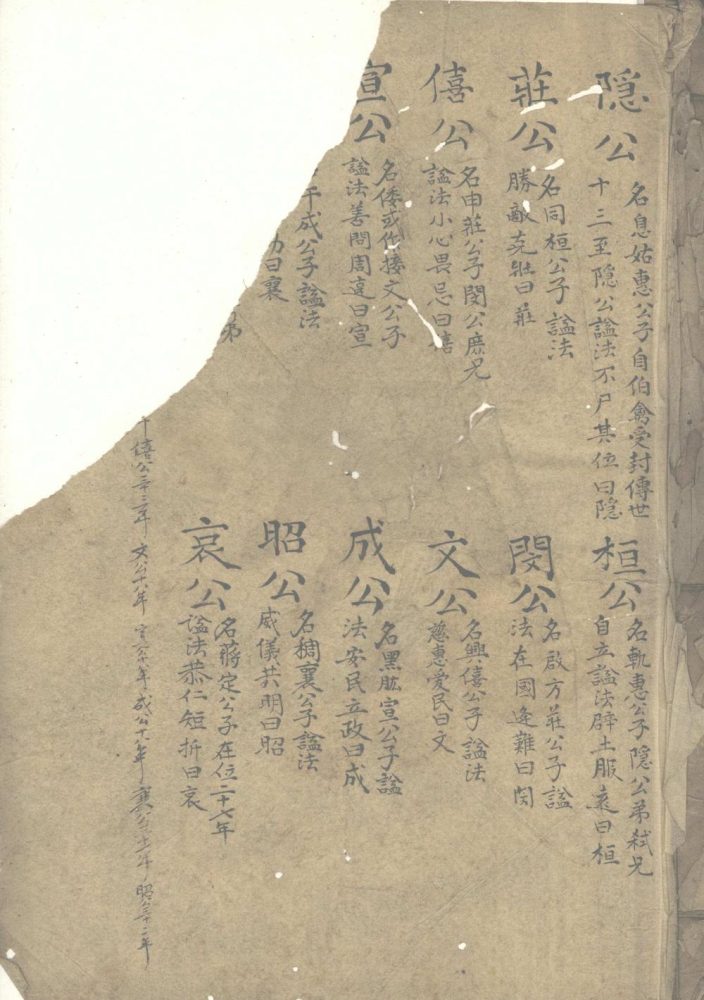 隐公
名息姑惠公子自伯禽受封傳世
十三至隐公諡法不尸其位曰隐
桓公
名軌惠公子隐公弟弒兄
自立諡法辟土服遠曰桓
莊公
名同桓公子諡法
勝敵克壯曰莊
閔公
名啟方莊公子諡
法在國逢難曰閔
僖公
名申莊公子閔公庶兄
諡法小心畏忌曰僖
文公
名興僖公子諡法
慈惠愛民曰文
宣公
名倭或作接文公子
諡法善問周達曰宣
成公
名黑肱宣公子諡
法安民立政曰成
午成公子諡法
曰襄
昭公
名稠襄公子諡法
威儀共明曰昭
弟
哀公
名蔣定公子在位二十七年
諡法恭仁短折曰哀
僖公三十三年 文公十八年 宣公十八年 成公十八年 襄公三十一年 昭公三十二年